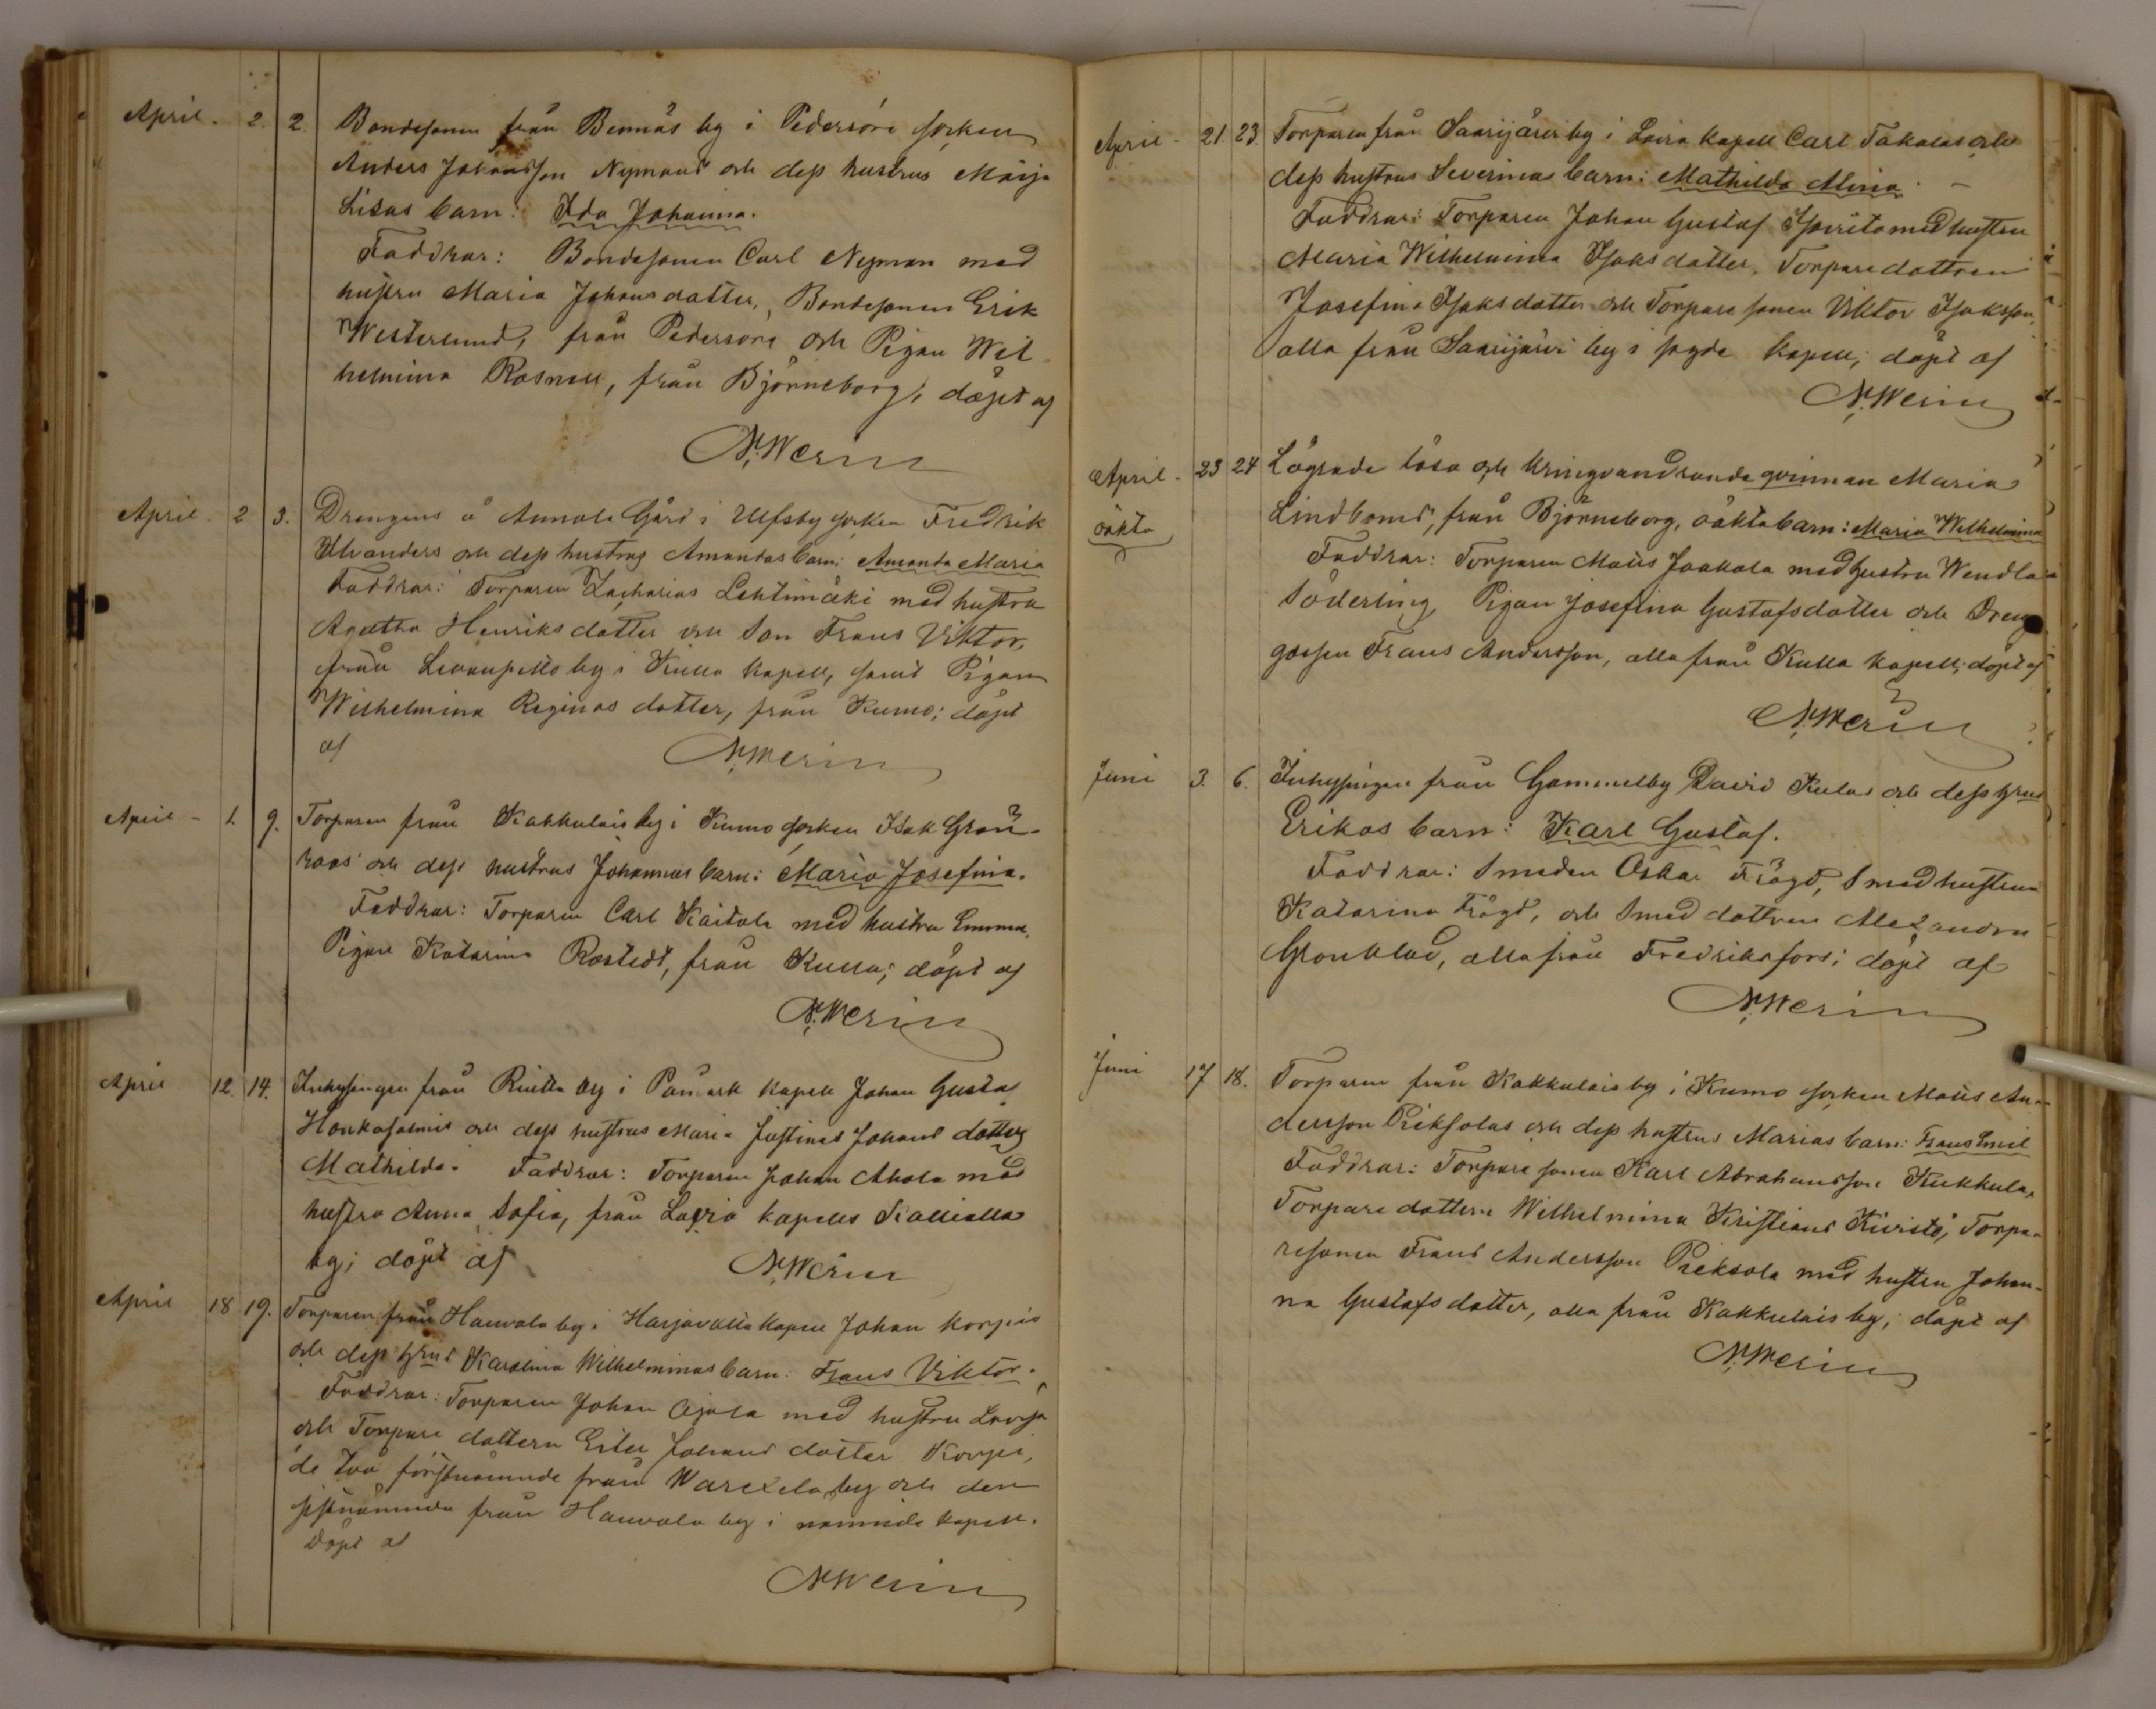 April. 2. 2. Bondesonen från Bennäs by i Pedersöre socken
Anders Johansson Nymans och dess hustrus Maija
Lisas barn: Ida Johanna.
Faddrar: Bondesonen Carl Nyman med
hustru Maria Johansdotter, Bondesonen Erik
Westerlund, från Pedersöre och Pigan Wil-
helmina Rosnell, från Björneborg; döpt af
N. Werin
April. 2 3. Drengens å Annola Gård i Ulfsby socken Fredrik
Ilvanders och dess hustrus Amandas barn: Amanda Maria
Faddrar: Torparen Zacharias Lehtimäki med hustru
Agatha Henriksdotter och Son Frans Viktor,
från by i Kulla Kapell, samt Pigan
Wilhelmina Reginas dotter, från Kumo; döpt
af N. Werin
April - 1. 9. Torparen från Kakkulais by i Kumo socken Isak Grön-
roos' och dess hustrus Johannas barn: Maria Josefina.
Faddrar: Torparen Carl Kaitala med hustru Emma,
Pigan Katarina Rostedt, från Kulla; döpt af
N. Werin
April 12. 14. Inhysingen från by i Påmark Kapell Johan Gustaf
Honkasalmis och dess hustrus Maria Justinas Johans dotter
Mathilda. Faddrar: Torparen Johan Ahola med
hustru Anna Sofia, från Lavia kapells
by; döpt af N. Werin
April 18 19. Torparen från Hauvola by i Harjavalta Kapell Johan Korpis
och dess hrus Karolina Wilhelminas barn: Frans Viktor.
Faddrar: Torparen Johan Ojala med hustru Lovisa
och Torpare dottern Johans dotter Korpi,
de två förstnämnde från by och den
sistnämnda från Hauvola by i nämnde kapell.
Döpt af
N. Werin
April - 21. 23. Torparen från Saarijärvi by i Lavia Kapell Carl Takalas och
dess hustrus Severinas barn: Mathilda Alina. -
Faddrar: Torparen Johan Gustaf med hustru
Maria Wilhelmina Isaksdotter, Torparedottren
Josefina Isaksdotter och Torparesonen Viktor Isaksson,
alla från Saarijärvi by i sagde Kapell; döpt af
N. Werin
April - 23 24 Lägrade lösa och kringvandrande qvinnan Maria
oäkta Lindboms, från Björneborg, oäkta barn: Maria Wilhelmina
Faddrar: Torparen Matis Jaakola med hustru Wendla
Söderling, Pigan Josefina Gustafsdotter och Dreng
gossen Frans Andersson, alla från Kulla Kapell; döpt af
N. Werin
Juni 3. 6. Inhysingen från Gammelby David Kulas och dess hrus
Erikas barn: Karl Gustaf.
Faddrar: Smeden Oskar Frögd, Smedhustrun
Katarina Frögd, och Smed dottren Alexandra
Gronblad, alla från Fredriksfors; döpt af
N. Werin
Juni 17 18. Torparen från Kakkulais by i Kumo socken Matis An-
dersson Pieksolas och dess hustrus Marias barn: Frans Emil
Faddrar: Torparesonen Karl Abrahamsson Kukkula,
Torparedottern Wilhelmina Kristians Kivistö, Torpa-
resonen Frans Andersson Pieksola med hustru Johan-
na Gustafsdotter, alla från Kakkulais by; döpt af
N. Werin